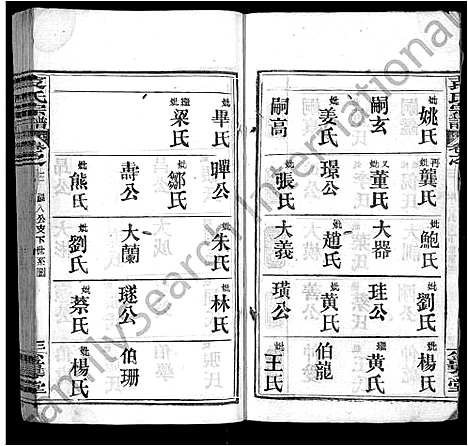 袁氏宗譜 卷之
妣姚氏
嗣玄
妣姜氏
嗣高
再妣龔氏
又妣董氏
璟公
妣張氏
妣鮑氏
大器
妣趙氏
大義
妣劉氏
珪公
妣黃氏
璜公
妣楊氏
繼妣黃氏
伯龍
妣王氏
妣畢氏
繼妣梁氏
暉公
妣鄒氏
壽公
妣熊氏
妣朱氏
大蘭
妣劉氏
妣林氏
璲公
妣蔡氏
伯珊
妣楊氏
袁氏宗譜 卷之
FamilySearch International